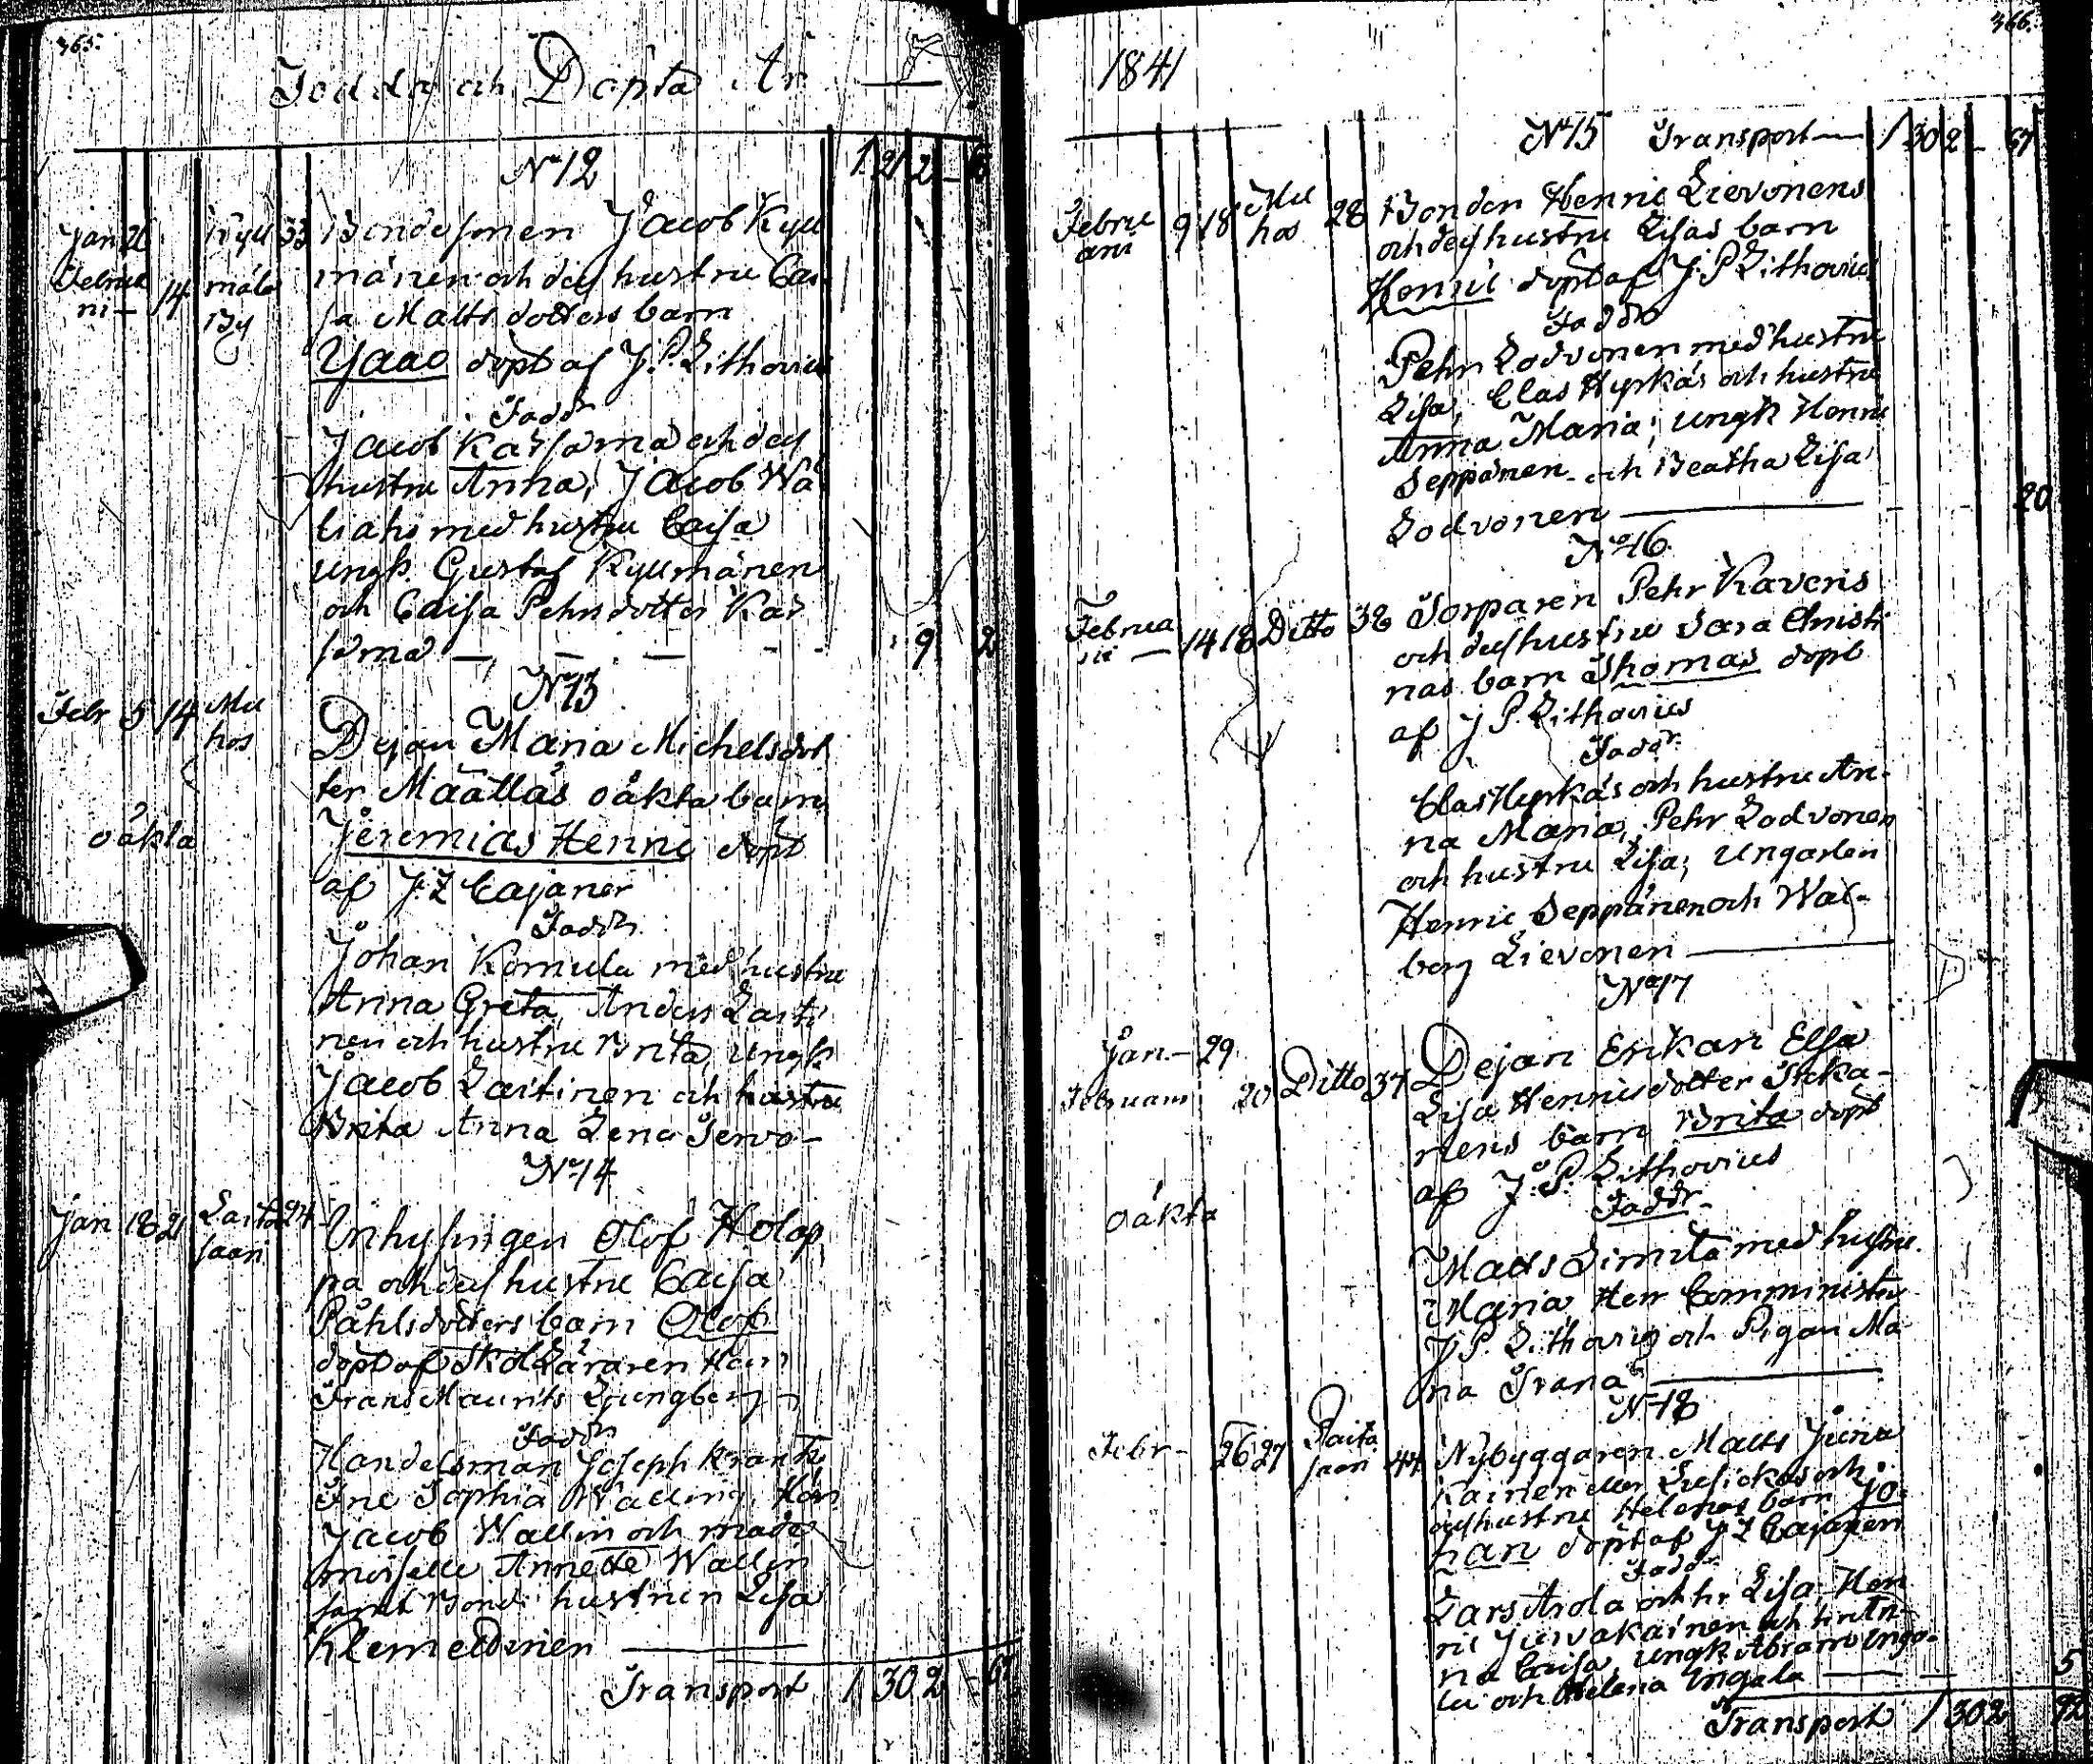 365.
Födda och Döpta År
N 12 1 21 2 -
Jan 26 Kyll 33 Bondesonen Jacob Kyll
Februa 14 mälä mänen och dess hustru Cai
ri - By sa Matts dotters barn
Isaac döpt af J. P. Lithovius
Fadd
Jacob Karsama och dess
hustru Anna, Jacob Wä
liaho med hustru Caisa
ungk. Gustaf Kyllmänen
och Caisa Pehrsdotter Kar
sama — — — 9 2
N 13
Febr 5 14 Mu
hos
Dejan Maria Michelsdot
ter Määttäs oäkta barn
oäkta Jeremias Henric döpt
af J. Z Cajaner
Fadd
Johan Komula med hustru
Anna Greta, Anders Lasti
nen och hustru Brita, Ungk
Jacob Lastinen och hustru
Brita Anna Lena Servo-
N 14
Jan 18 21 Saita 24 Inhysingen Olof Holap
saari pa och dess hustru Caisa
Påhlsdotters barn Olof
döpt af SkolLäraren Herr
Frans Maurits Ljungberg
Fadd
Handelsman Joseph Krank
Frie Sophia Walling, Herr
Jacob Wallin och made
moiselle Annette Wallin
samt Bonde hustrun Lisa
Klemettinen —
Transport 1 30 2 - 67

366.
1841
N 15 Transport — 1 30 2 - 67
Februa 9 18 Mu 28 Bonden Henric Lievonens
arii hos och dess hustru Lisas barn
Henric döpt af J. P Lithovius
Fadd
Pehr Lodvonen med hustru
Lisa, Clas Hyrkäs och hustru
Anna Maria; ungk Henric
Seppänen och Beatha Lisa
Lodvonen — 20
N 16.
Februa 14 18 Ditto 38 Torparen Pehr Kaveris
rii — och dess hustru Sara Christi
nas barn Thomas döpt
af J P. Lithovius
Faddr.
Clas Hyrkäs och hustru An-
na Maria, Pehr Lodvonen
och hustru Lisa; Ungarlen
Henric Seppänen och Wal-
borg Lievonen —
N 17
Jan - 29 Dejan Enkan Elsa
Februarii 20 Ditto 37 Lisa Henricsdotter Ikka-
nens barn Brita döpt
af J. P. Lithovius
oäkta Faddr-
Matts Simita med hustru
Maria Herr Comminister
J P. Lithovius och Pigan Ma
ria Trana —
N 18
Febr - 26 27 Saita 44 Nybyggaren Matts Juva
saari kainen och
dess hustru Helenas barn Jo-
han döpt af J Z Cajanen
Fadd
Lars Arola och hr Lisa, Hen
ric Juvakainen och hr An-
na Caisa, ungk Abram Inga-
la och Helena Ingala — 5
Transport 1 302 92